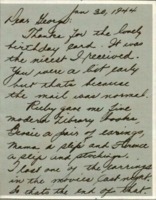 Jan 20, 1944
Dear George,
Thanks for the lovely
birthday card. It was
the nicest I received.
You were a bit early
but thats because
the mail was normal.
Ruby gave me five
modern library books,
Bernie a pair of earings,
Mama a slip and Florence
a slip and stockings.
I lost one of the earrings
in the movies last night,
So thats the end of that.